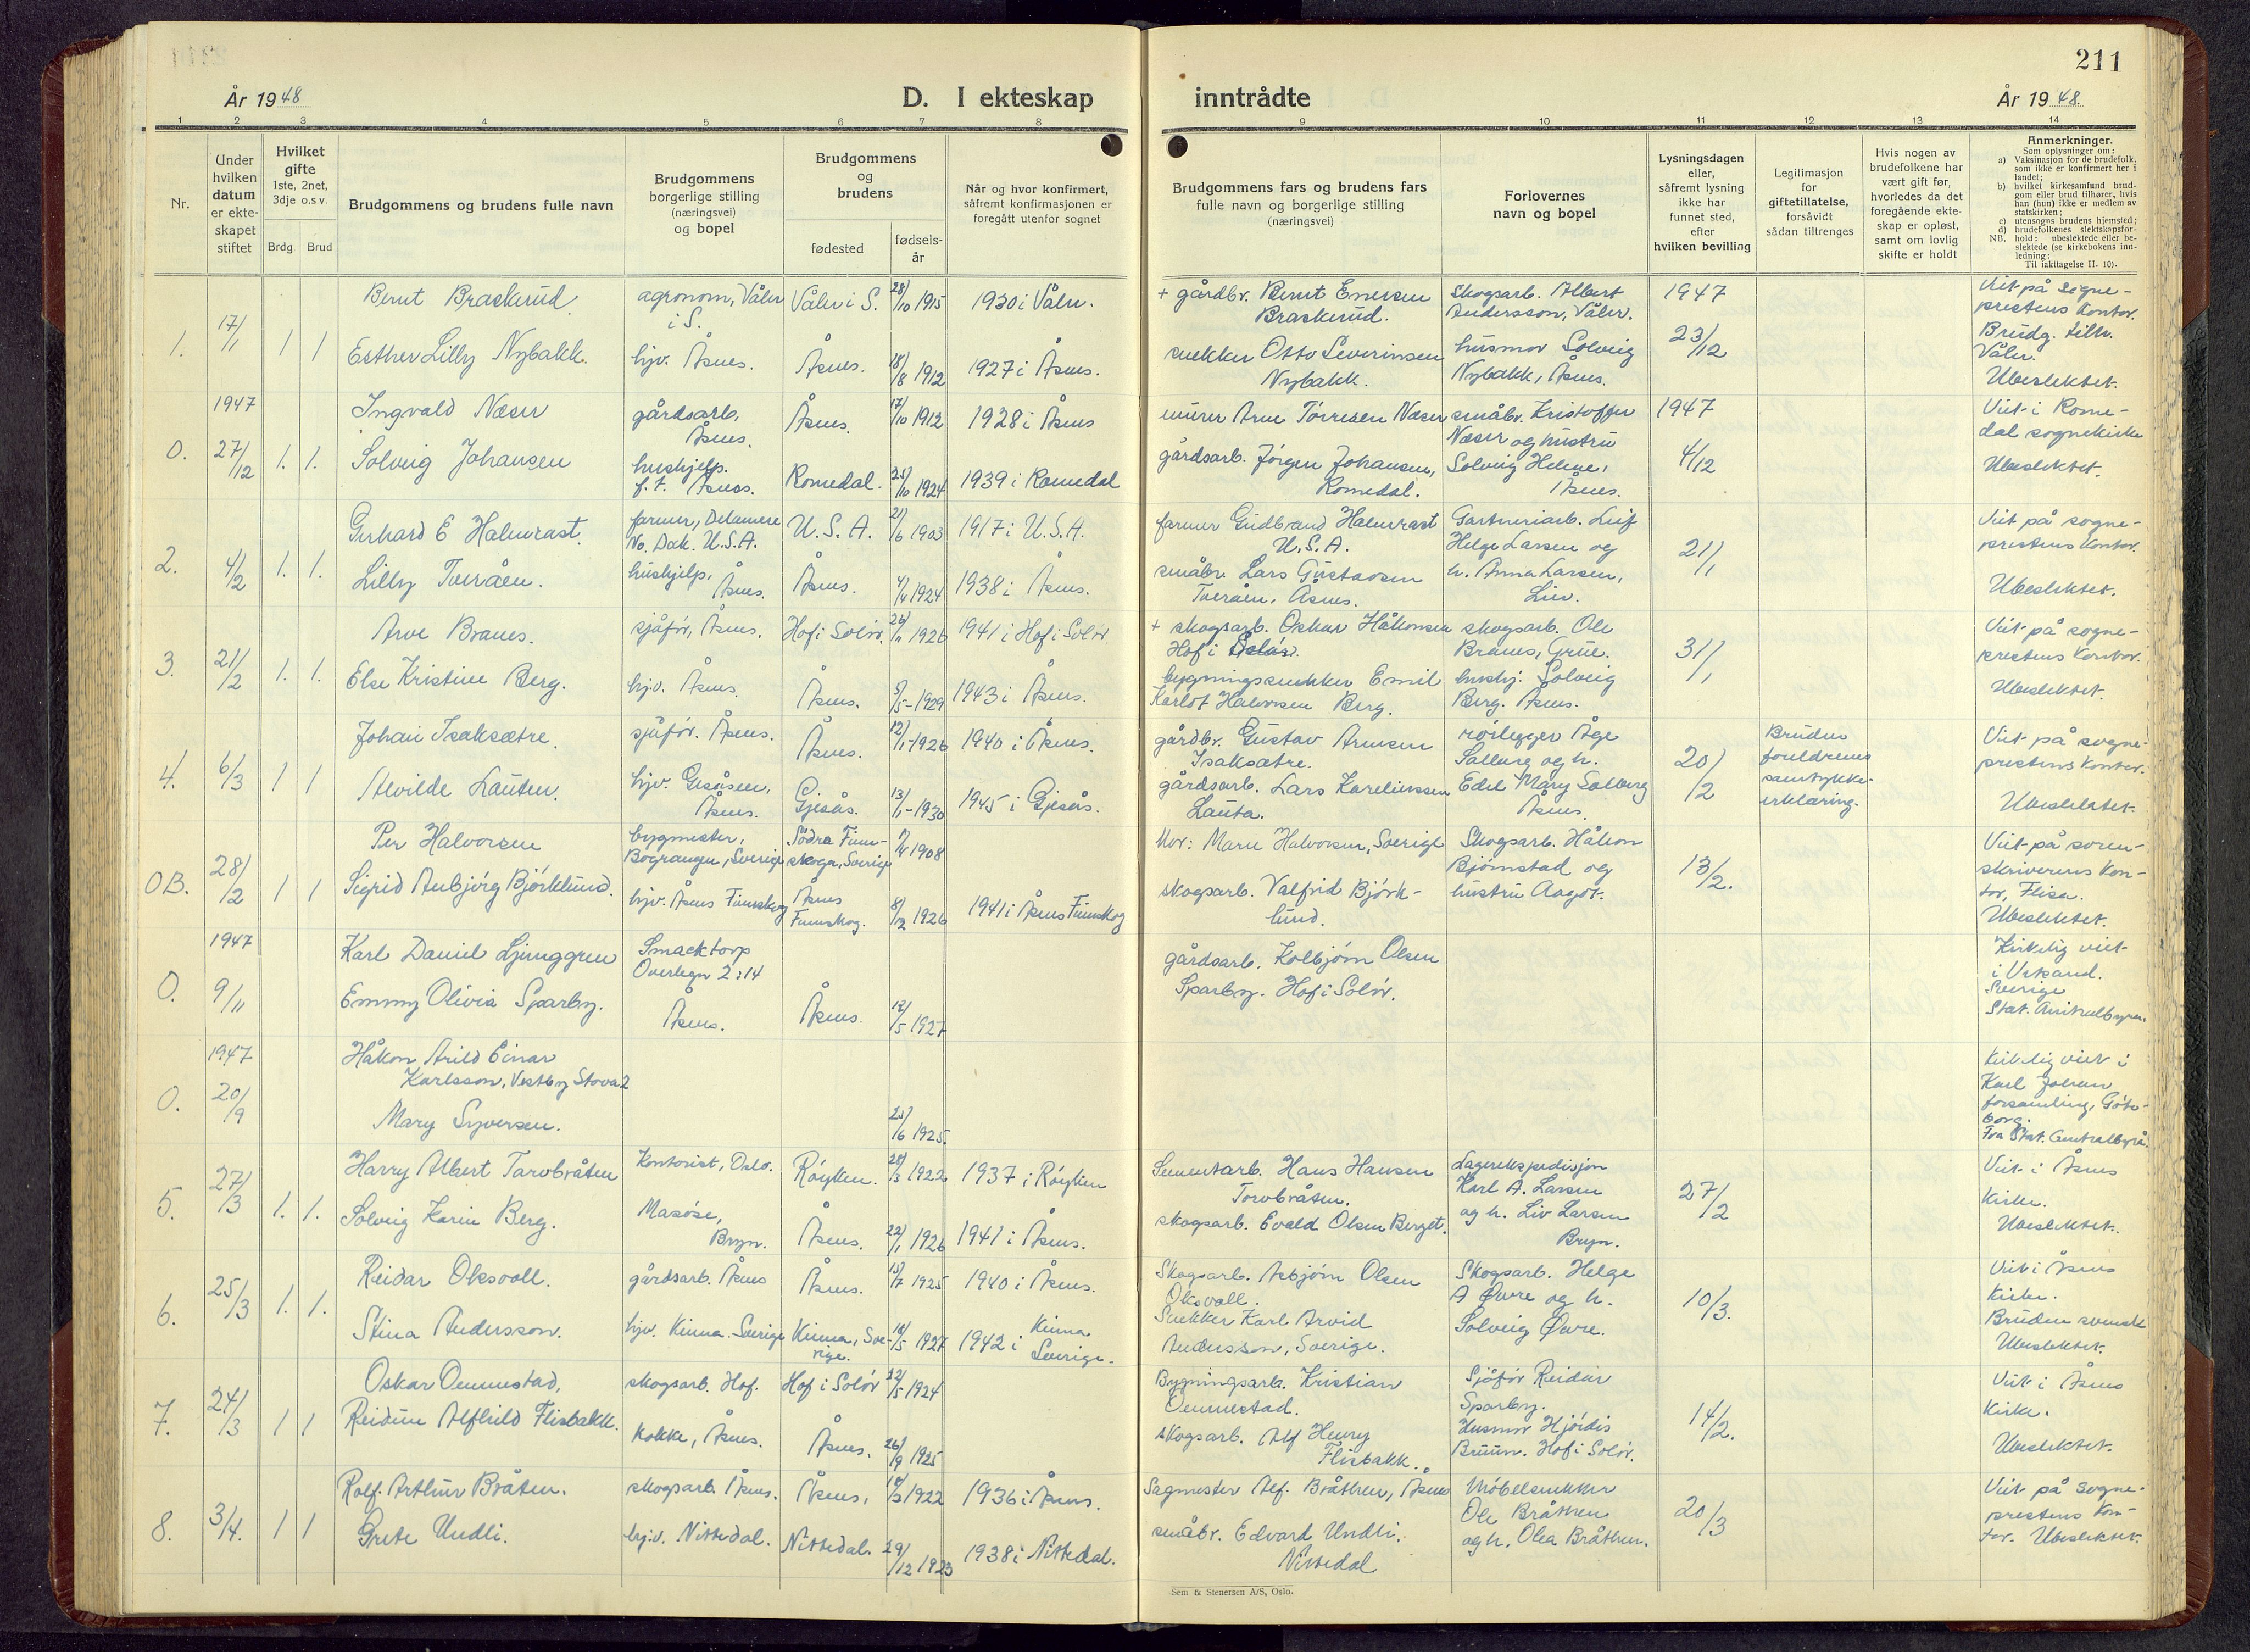 211
År 1948
D. I ekteskap inntrådte
År 1948.
1 2 3 4 5 6 7 8 9 10 11 12 13 14
Nr.
Under hvilken datum er ekteskapet stiftet
Hvilket gifte 1ste, 2net, 3dje o.s.v.
Brdg. Brud
Brudgommens og brudens fulle navn
Brudgommens borgerlige stilling (næringsvei) og bopel
Brudgommens og brudens
fødested
fødsels-år
Når og hvor konfirmert, såfremt konfirmasjonen er foregått utenfor sognet
Brudgommens fars og brudens fars fulle navn og borgerlige stilling (næringsvei)
Forlovernes navn og bopel
Lysningsdagen eller, såfremt lysning ikke har funnet sted, efter hvilken bevilling
Legitimasjon for giftetillatelse, forsåvidt sådan tiltrenges
Hvis nogen av brudefolkene har vært gift før, hvorledes da det foregående ekteskap er opløst, samt om lovlig skifte er holdt
Anmerkninger.
Som oplysninger om:
a) Vaksinasjon for de brudefolk, som ikke er konfirmert her i landet;
b) hvilket kirkesamfund brudgom eller brud tilhører, hvis han (hun) ikke er medlem av statskirken;
c) utensogns brudens hjemsted;
d) brudefolkenes slektskapsforhold: ubeslektede eller beslektede (se kirkebokens innledning:
NB. Til iakttagelse II. 10).
1. 17/1 1 1
Bernt Braskerud agronom, Våler i S. Våler i S. 28/10 1915 1930 i Våler.
+ gårdbr. Bernt Enersen Braskerud.
Skogsarb. Albert Andersson, Våler.
1947 23/12
Viet på sogneprestens kontor. Brudg. tilh. Våler. Ubeslektet.
Esther Lilly Nybakk. hjv. Åsnes. Åsnes. 18/8 1912 1927 i Åsnes.
snekker Otto Severinsen Nybakk.
husmor Solveig Nybakk, Åsnes.
0. 1947 27/12 1. 1.
Ingvald Næser gårdsarb, Åsnes. Åsnes. 17/10 1912 1928 i Åsnes
murer Arne Tørresen Næser
småbr. Kristoffer Næser og hustru Solveig Helene, Åsnes.
1947 4/12
Viet i Romedal sognekirke Ubeslektet.
Solveig Johansen hushjelp. f.t. Åsnes. Romedal. 25/10 1924 1939 i Romedal
gårdsarb. Jørgen Johansen, Romedal.
2. 4/2 1. 1.
Gerhard E Halmrast. farmer, Delamere No. Dak. U.S.A. U.S.A. 21/6 1903 1917 i U.S.A.
farmer Gudbrand Halmrast U.S.A.
Gartneriarb. Leif Helge Larsen og h. Anna Larsen,
21/1
Viet på sogneprestens kontor. Ubeslektet.
Lilly Tveråen. hushjelp, Åsnes. Åsnes. 4/4 1924 1938 i Åsnes.
småbr. Lars Gustavsen Tveråen, Åsnes.
3. 21/2 1. 1.
Arve Branes. sjåfør, Åsnes. Hof i Solør. 26/11 1926 1941 i Hof i Solør
+ skogsarb. Oskar Håkonsen Hof i Solør.
skogsarb. Ole Branes, Grue.
31/1
Viet på sogneprestens kontor. Ubeslektet.
Else Kristine Berg. hjv. Åsnes. Åsnes. 5/5-1929 1943 i Åsnes.
bygningssnekker Emil Karlot Halvorsen Berg.
hushj. Solveig Berg. Åsnes.
4. 6/3 1 1
Johan Isaksætre. sjåfør. Åsnes. Åsnes. 12/1-1926 1940 i Åsnes.
gårdbr. Gustav Arnesen Isaksætre.
rørlegger Åge Solberg og h. Edel Mary Solberg Åsnes.
20/2
Bruden foreldrenes samtykke-erklæring.
Viet på sogneprestens kontor. Ubeslektet.
Alvilde Lauten. hjv. Gjesåsen, Åsnes. Gjesås. 13/1-1930 1945 i Gjesås.
gårdsarb. Lars Kareliussen Lauta.
0B. 28/2 1 1
Per Halvorsen bygmester, Bograngen, Sverige Södra Finnskoga, Sverige 1908
Mor: Marie Halvorsen, Sverige
Skogsarb. Håkon Bjørnstad og hustru Aagot.
13/2.
Viet på sorenskriverens kontor, Flisa. Ubeslektet.
Sigrid Anbjørg Bjørklund. hjv. Åsnes Finnskog Åsnes Finnskog. 8/12 1926 1941 i Åsnes Finnskog
skogsarb. Valfrid Bjørklund.
0. 1947 9/11
Karl Daniel Ljunggren Smacktorp Överbyn 2:14
gårdsarb. Kolbjørn Olsen Sparby. Hof i Solør.
Kirkelig viet i Sverige
Emmy Olivia Sparby. Åsnes. Åsnes. 12/5 1927
0. 1947 20/9
Håkon Arild Einar Karlsson, Vestby Stova 2
Mary Syversen. 25/6 1925.
Kirkelig viet i Karl Johan forsamling, Göteborg. Fra Stat. Centralbyrå.
5. 27/3 1. 1.
Harry Albert Torvbråten Kontorist, Oslo. Røyken. 1922 1937 i Røyken
Sementarb. Hans Hansen Torvbråten.
Lagerekspedisjon Karl A. Larsen og h. Liv Larsen Bryn.
27/2
Viet i Åsnes Kirke. Ubeslektet.
Solveig Karin Berg. Masøse, Bryn. Åsnes. 22/1 1926 1941 i Åsnes.
skogsarb. Evald Olsen Berget.
6. 25/3 1. 1.
Reidar Oksvoll. gårdsarb. Åsnes Åsnes. 15/7 1925 1940 i Åsnes.
Skogsarb. Asbjørn Olsen Oksvoll.
Skogsarb. Helge A Øvre og h. Solveig Øvre.
10/3.
Viet i Åsnes Kirke. Bruden svensk Ubeslektet.
Stina Andersson. hjv. Kinna. Sverige Kinna, Sverige. 18/5 1927 1942 i Kinna Sverige.
Snekker Karl Arvid Andersson, Sverige.
7. 24/3 1 1
Oskar Oennestad, skogsarb. Hof. Hof i Solør 22/5 1924
Bygningsarb. Kristian Oennestad.
Sjåfør Reidar Sparby. Husmor Hjørdis Bruun. Hof i Solør.
14/2.
Viet i Åsnes Kirke. Ubeslektet.
Reidun Alfhild Flisbakk. kokke, Åsnes. Åsnes. 26/9 1925
skogsarb. Alf Henry Flisbakk.
8. 3/4. 1 1
Rolf Arthur Bråten. skogsarb. Åsnes. Åsnes, 1922 1936 i Åsnes.
Sagmester Alf. Bråthen, Åsnes
Møbelsnekker Ole Bråthen og h. Olea Bråthen.
20/3
Viet på sogneprestens kontor. Ubeslektet.
Grete Undli. hjv. Nittedal. Nittedal. 29/12 1923 1938 i Nittedal.
småbr. Edvard Undli. Nittedal
Sem & Stenersen A/S, Oslo.